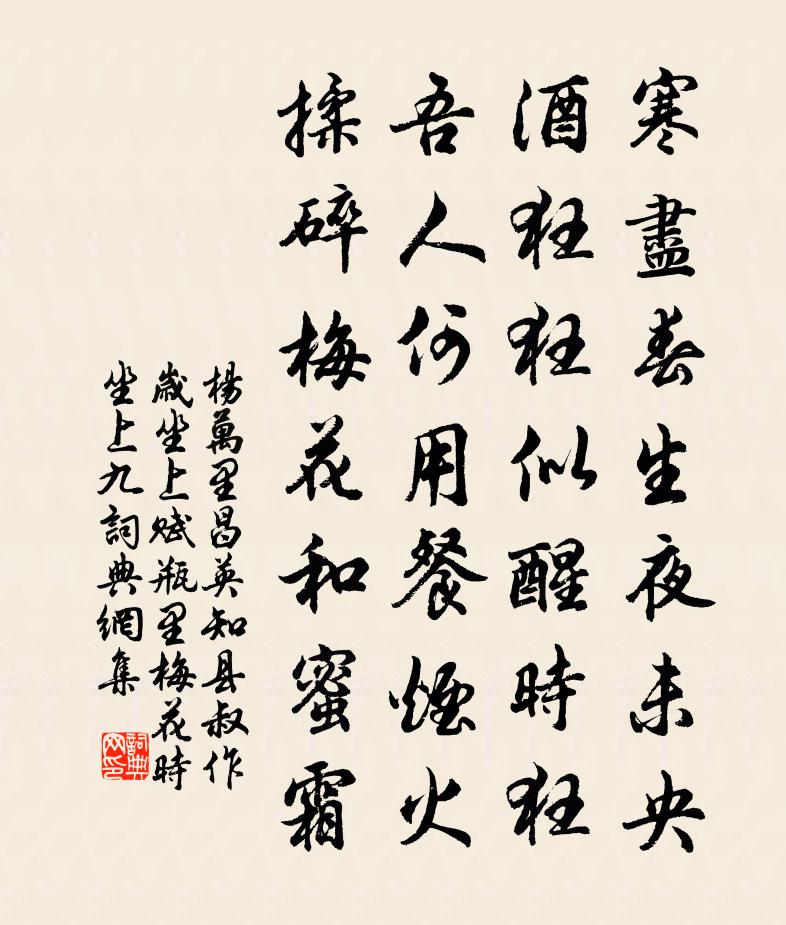 寒盡春生夜未央
酒狂狂似醒時狂
吾人何用餐煙火
揉碎梅花和蜜霜
楊萬里昌英知县叔作
歲坐上赋瓶里梅花時
坐上九詞典網集
詞典网印